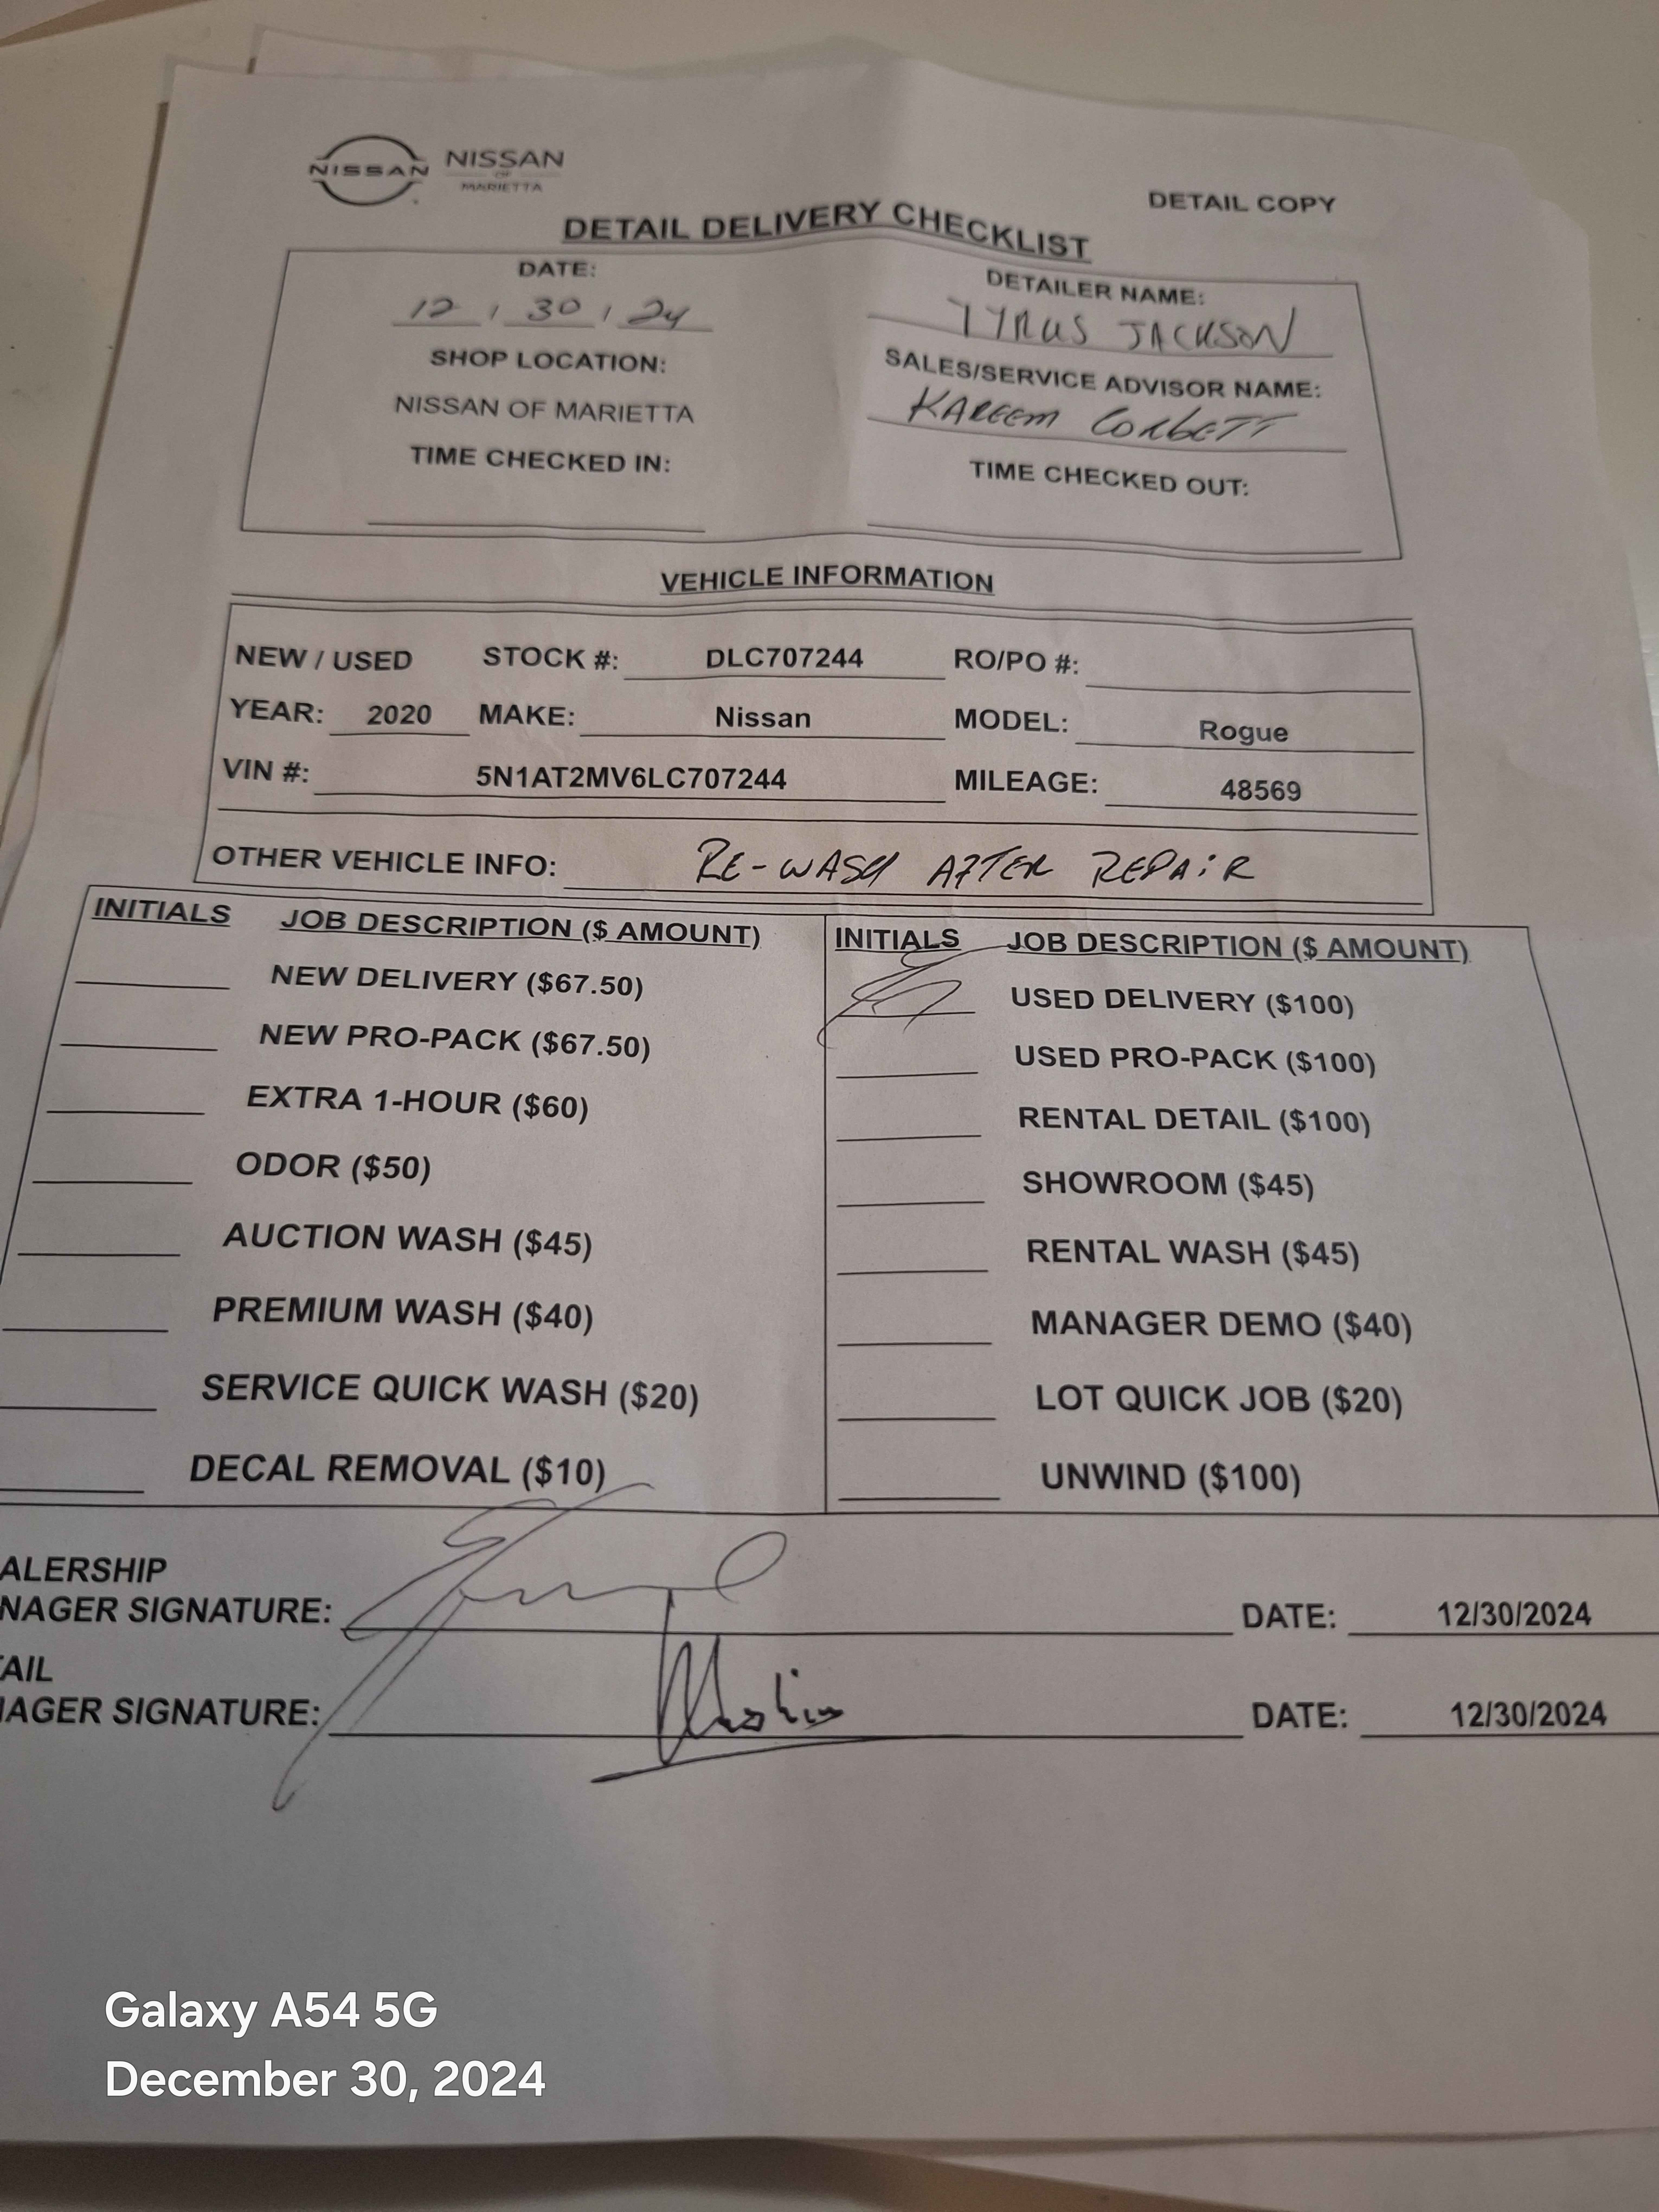 NISSAN NISSAN
OF
MARIETTA
DETAIL COPY
DETAIL DELIVERY CHECKLIST
DATE: DETAILER NAME:
12 / 30 / 24 TYRUS JACKSON
SHOP LOCATION: SALES/SERVICE ADVISOR NAME:
NISSAN OF MARIETTA KAREEM CORBETT
TIME CHECKED IN: TIME CHECKED OUT:
VEHICLE INFORMATION
NEW / USED STOCK #: DLC707244 RO/PO #:
YEAR: 2020 MAKE: Nissan MODEL: Rogue
VIN #: 5N1AT2MV6LC707244 MILEAGE: 48569
OTHER VEHICLE INFO: RE-WASH AFTER REPAIR
INITIALS JOB DESCRIPTION ($ AMOUNT) INITIALS JOB DESCRIPTION ($ AMOUNT)
NEW DELIVERY ($67.50) USED DELIVERY ($100)
NEW PRO-PACK ($67.50) USED PRO-PACK ($100)
EXTRA 1-HOUR ($60) RENTAL DETAIL ($100)
ODOR ($50) SHOWROOM ($45)
AUCTION WASH ($45) RENTAL WASH ($45)
PREMIUM WASH ($40) MANAGER DEMO ($40)
SERVICE QUICK WASH ($20) LOT QUICK JOB ($20)
DECAL REMOVAL ($10) UNWIND ($100)
ALERSHIP
NAGER SIGNATURE: DATE: 12/30/2024
AIL
AGER SIGNATURE: DATE: 12/30/2024
Galaxy A54 5G
December 30, 2024